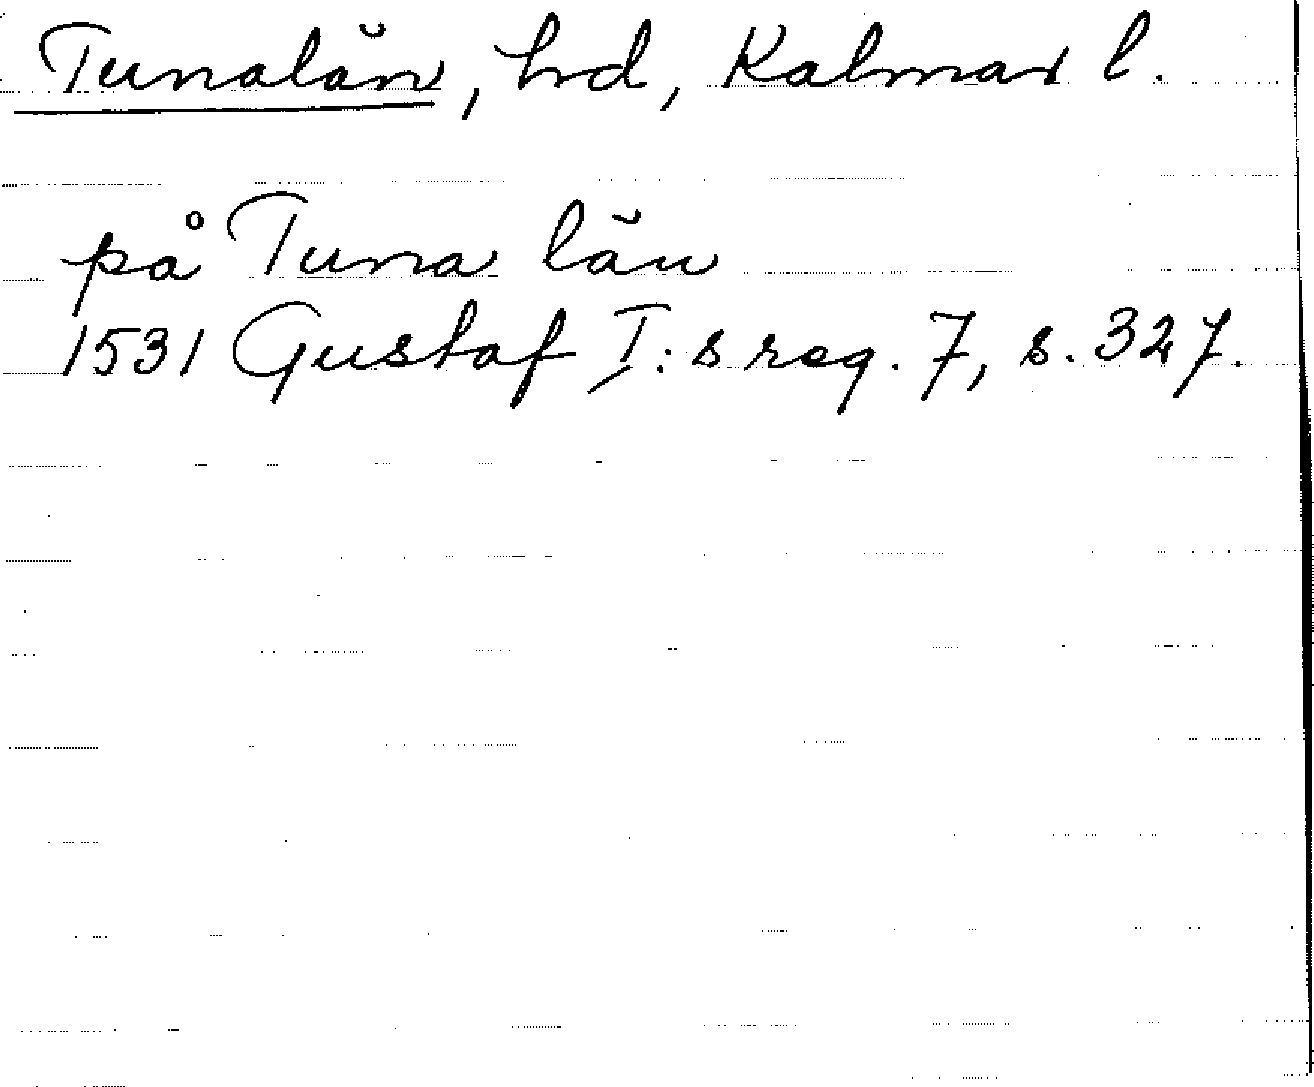 Tunalän, hd, Kalmar l.
på Tuna län
1531 Gustaf I:s reg. 7, s. 327.